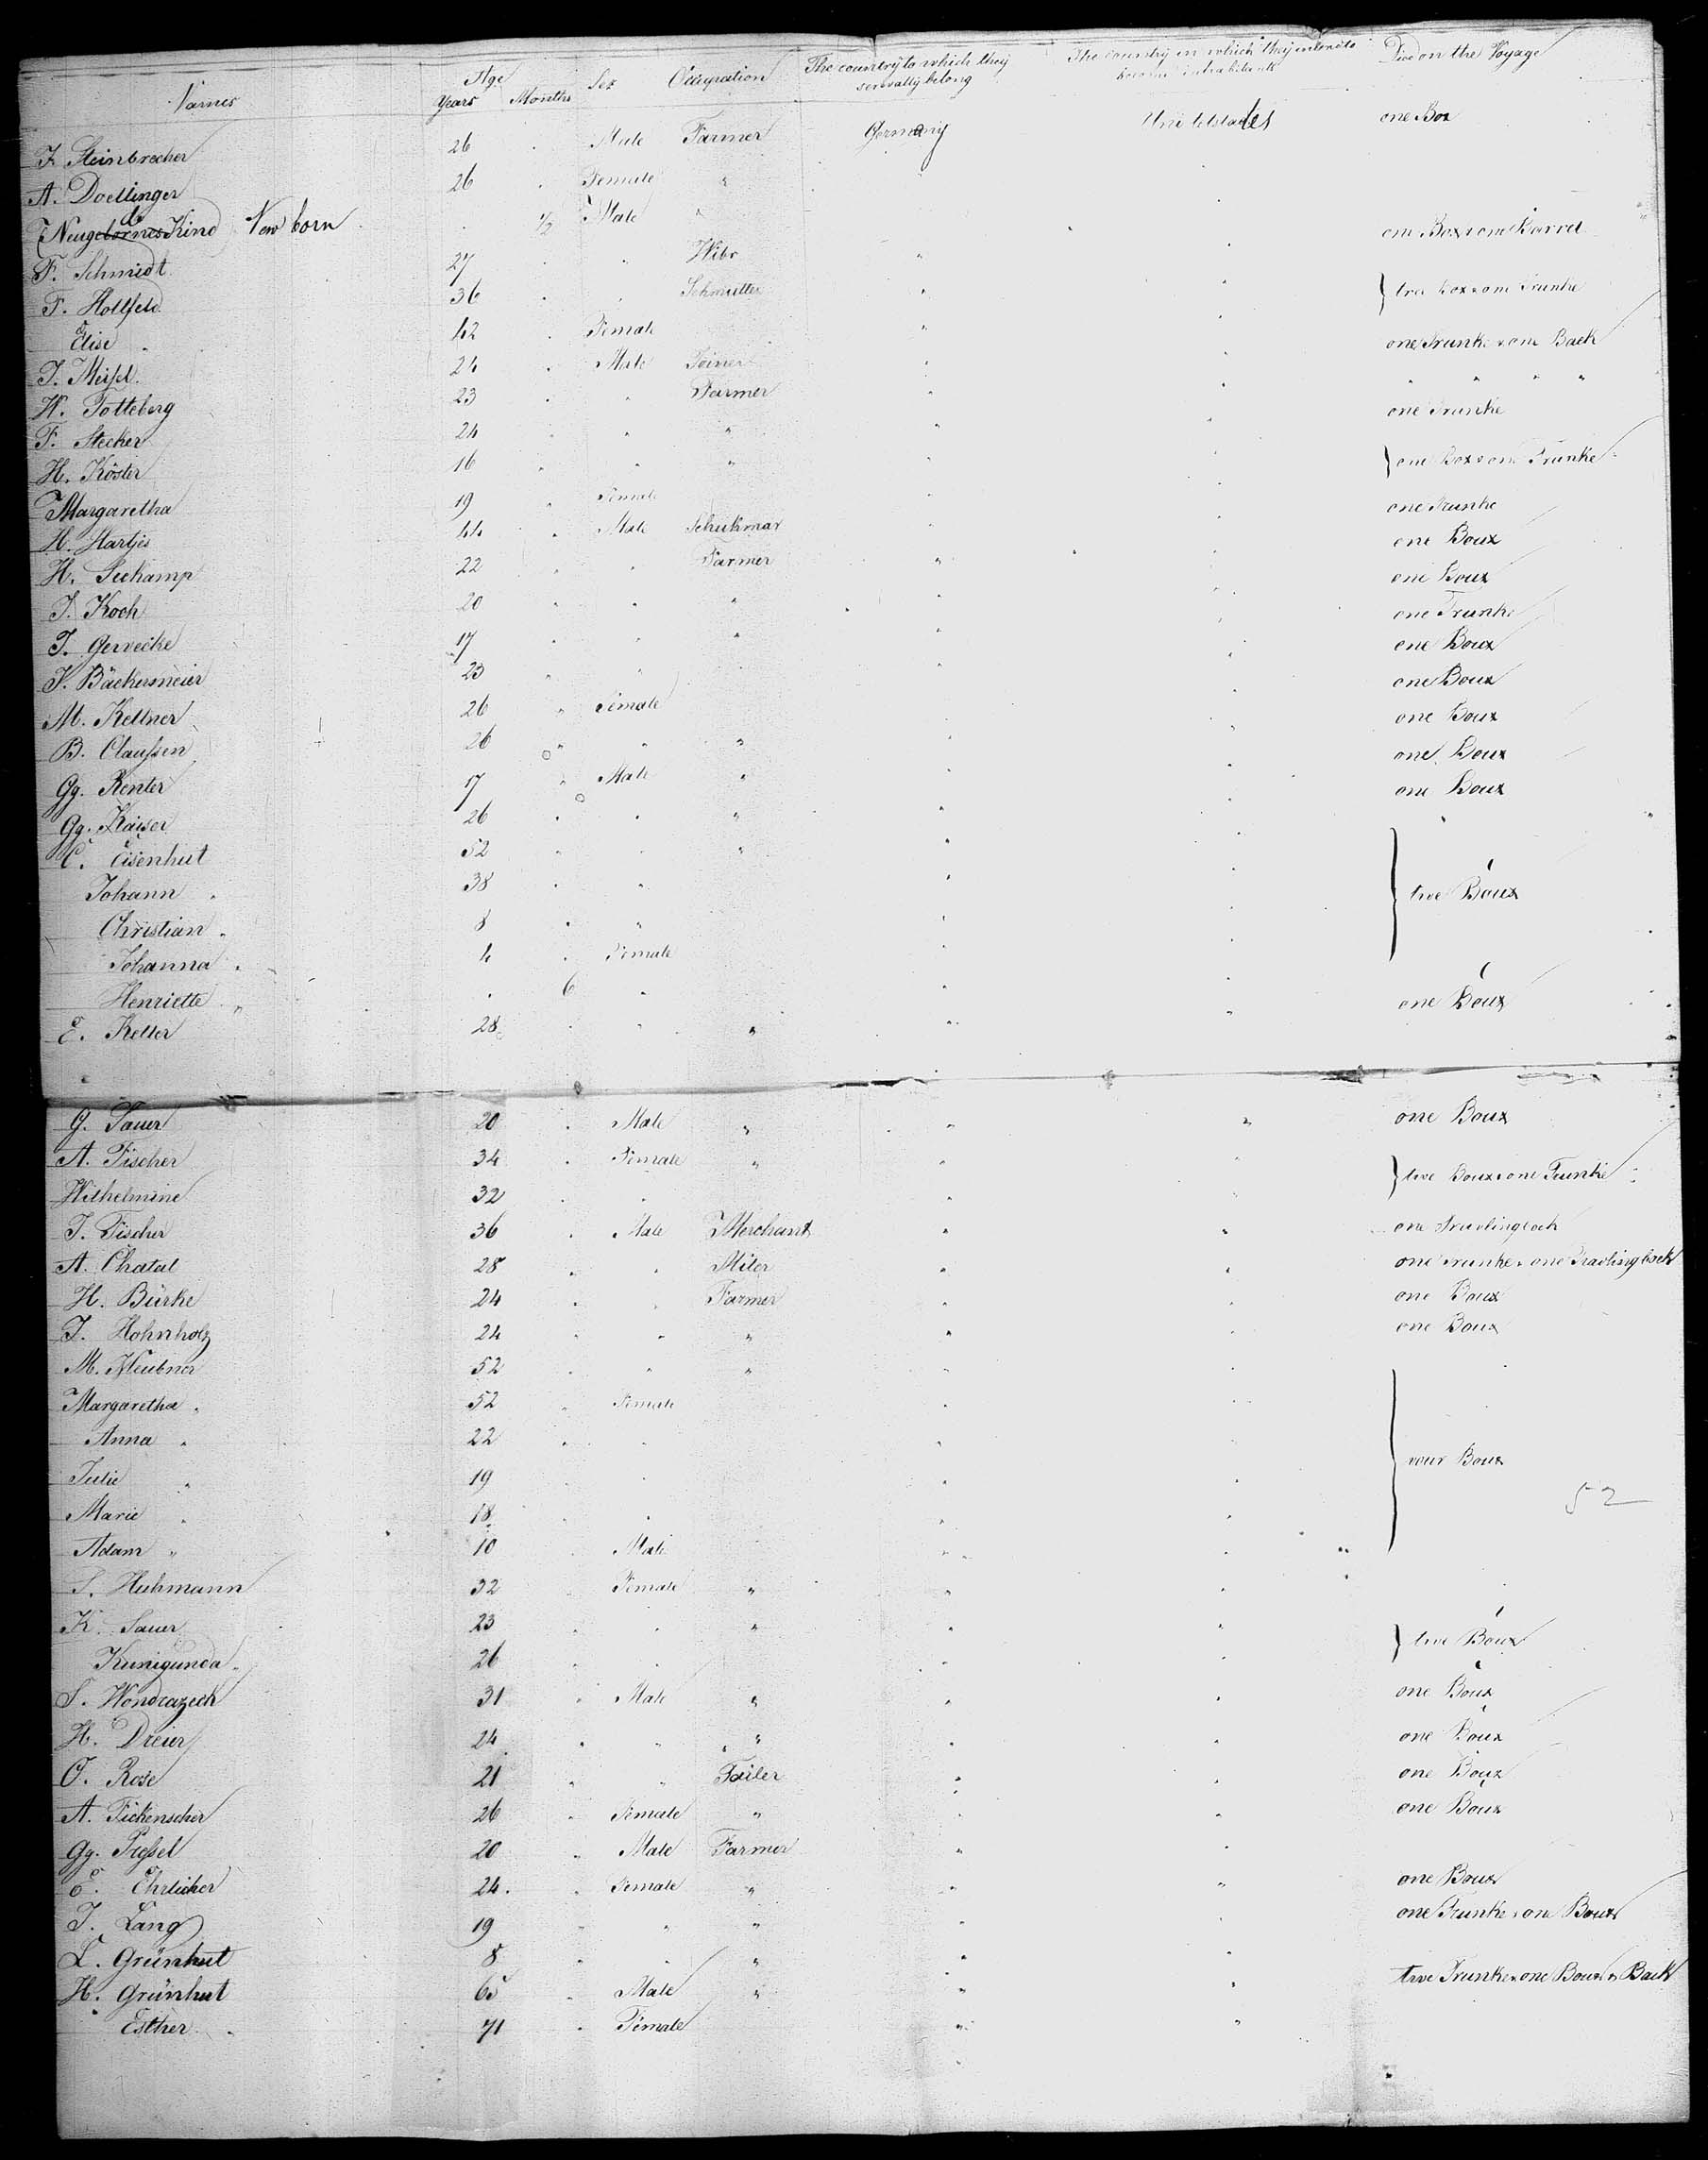 Names Age Years Months Sex Occupation The country to which they serverally belong The country in which they intend to become inhabitants Died on the Voyage
F. Steinbrecher 26 " Male Farmer Germany Unitetstades one Box
A. Doellinger 26 " Female "
Neugebornes Kind New born " 1/2 Male " one Box & one Barrel
F. Schmidt 27 " " "
F. Hollfeld 36 " " " one Trunke
Elise " 42 " Female " " one Trunke & one Back
J. Meissel 24 " Male " " " " " "
W. Totteberg 23 " " Farmer " " one Trunke
F. Stecker 24 " " " " "
H. Köster 16 " " " " " } one Box & one Trunke
Margaretha 19 " Female " " one Trunke
H. Hartjes 44 " Male Schukmar " " one Boux
H. Seekamp 22 " " Farmer " " one Boux
J. Koch 20 " " " " " one Trunke
J. Gervecke 17 " " " " " one Boux
J. Bäckersmeier 23 " " " " one Boux
M. Kellner 26 " Female " one Boux
B. Claussen 26 " " " " " one Boux
Gg. Renter 17 " Male " " " one Boux
Gg. Kaiser 26 " " " " " "
C. Eisenhut 52 " " " " "
Johann " 38 " " " " } twe Boux
Christian " 8 " " " "
Johanna " 4 " Female " "
Henriette " " 6 " " " one Boux
E. Keller 28 " " " " "
G. Sauer 20 " Male " " " one Boux
A. Fischer 34 " Female " " " } twe Boux & one Trunke
Wilhelmine 32 " " " "
J. Fischer 36 " Male Merchant " "
A. Chatal 28 " " Miler " " one Trunke & one
H. Bürke 24 " " Farmer " " one Boux
J. Hohnholz 24 " " " " " one Boux
M. Heubner 52 " " " " "
Margaretha " 52 " Female " "
Anna " 22 " " " "
Julie " 19 " " " " } Boux
Marie " 18 " " " " 52
Adam " 10 " Male " "
S. Huhmann 32 " Female " " "
K. Sauer 23 " " " " " } twe Boux
Kunigunda " 26 " " " "
S. Wondrazeck 31 " Male " " " one Boux
H. Dreier 24 " " " " " one Boux
O. Rose 21 " " Tailer " " one Boux
A. Fickenscher 26 " Female " " " one Boux
Gg. Pressel 20 " Male Farmer " "
E. Ehrlicher 24 " Female " " " one Boux
J. Lang 19 " " " " " one Trunke & one Boux
L. Grünhut 8 " " " " "
H. Grünhut 65 " Male " " " twe Trunke & one Boux & Back
Esther " 71 " Female " "